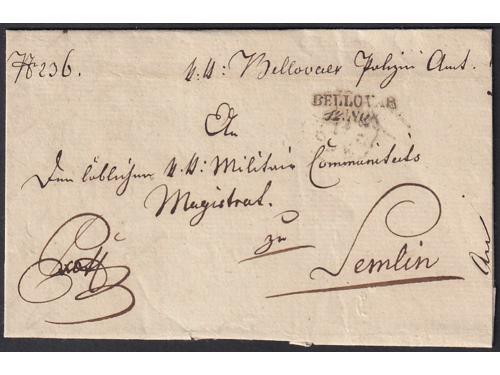 No 236.
K. K: Bellovaer Polizei Amt.
BELLOVAR
12. NOV
An
Den löblichen K. K: Militair Communitaets
Magistrat.
zu
Semlin